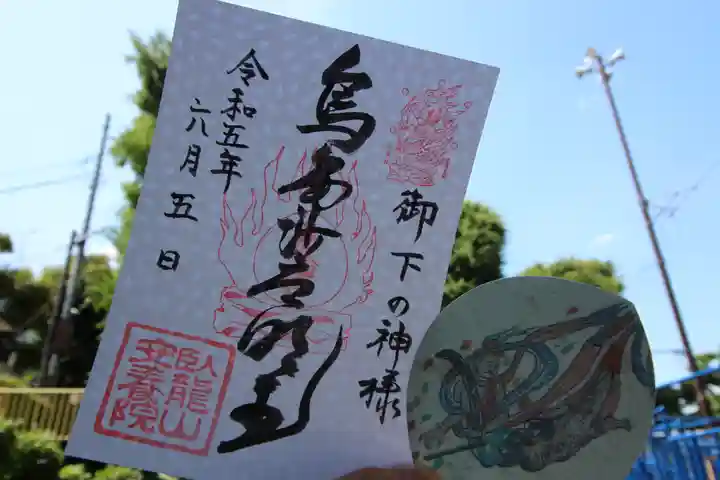 御下の神様
烏蒭沙摩明王
令和五年
六月五日
臥龍山
安養院